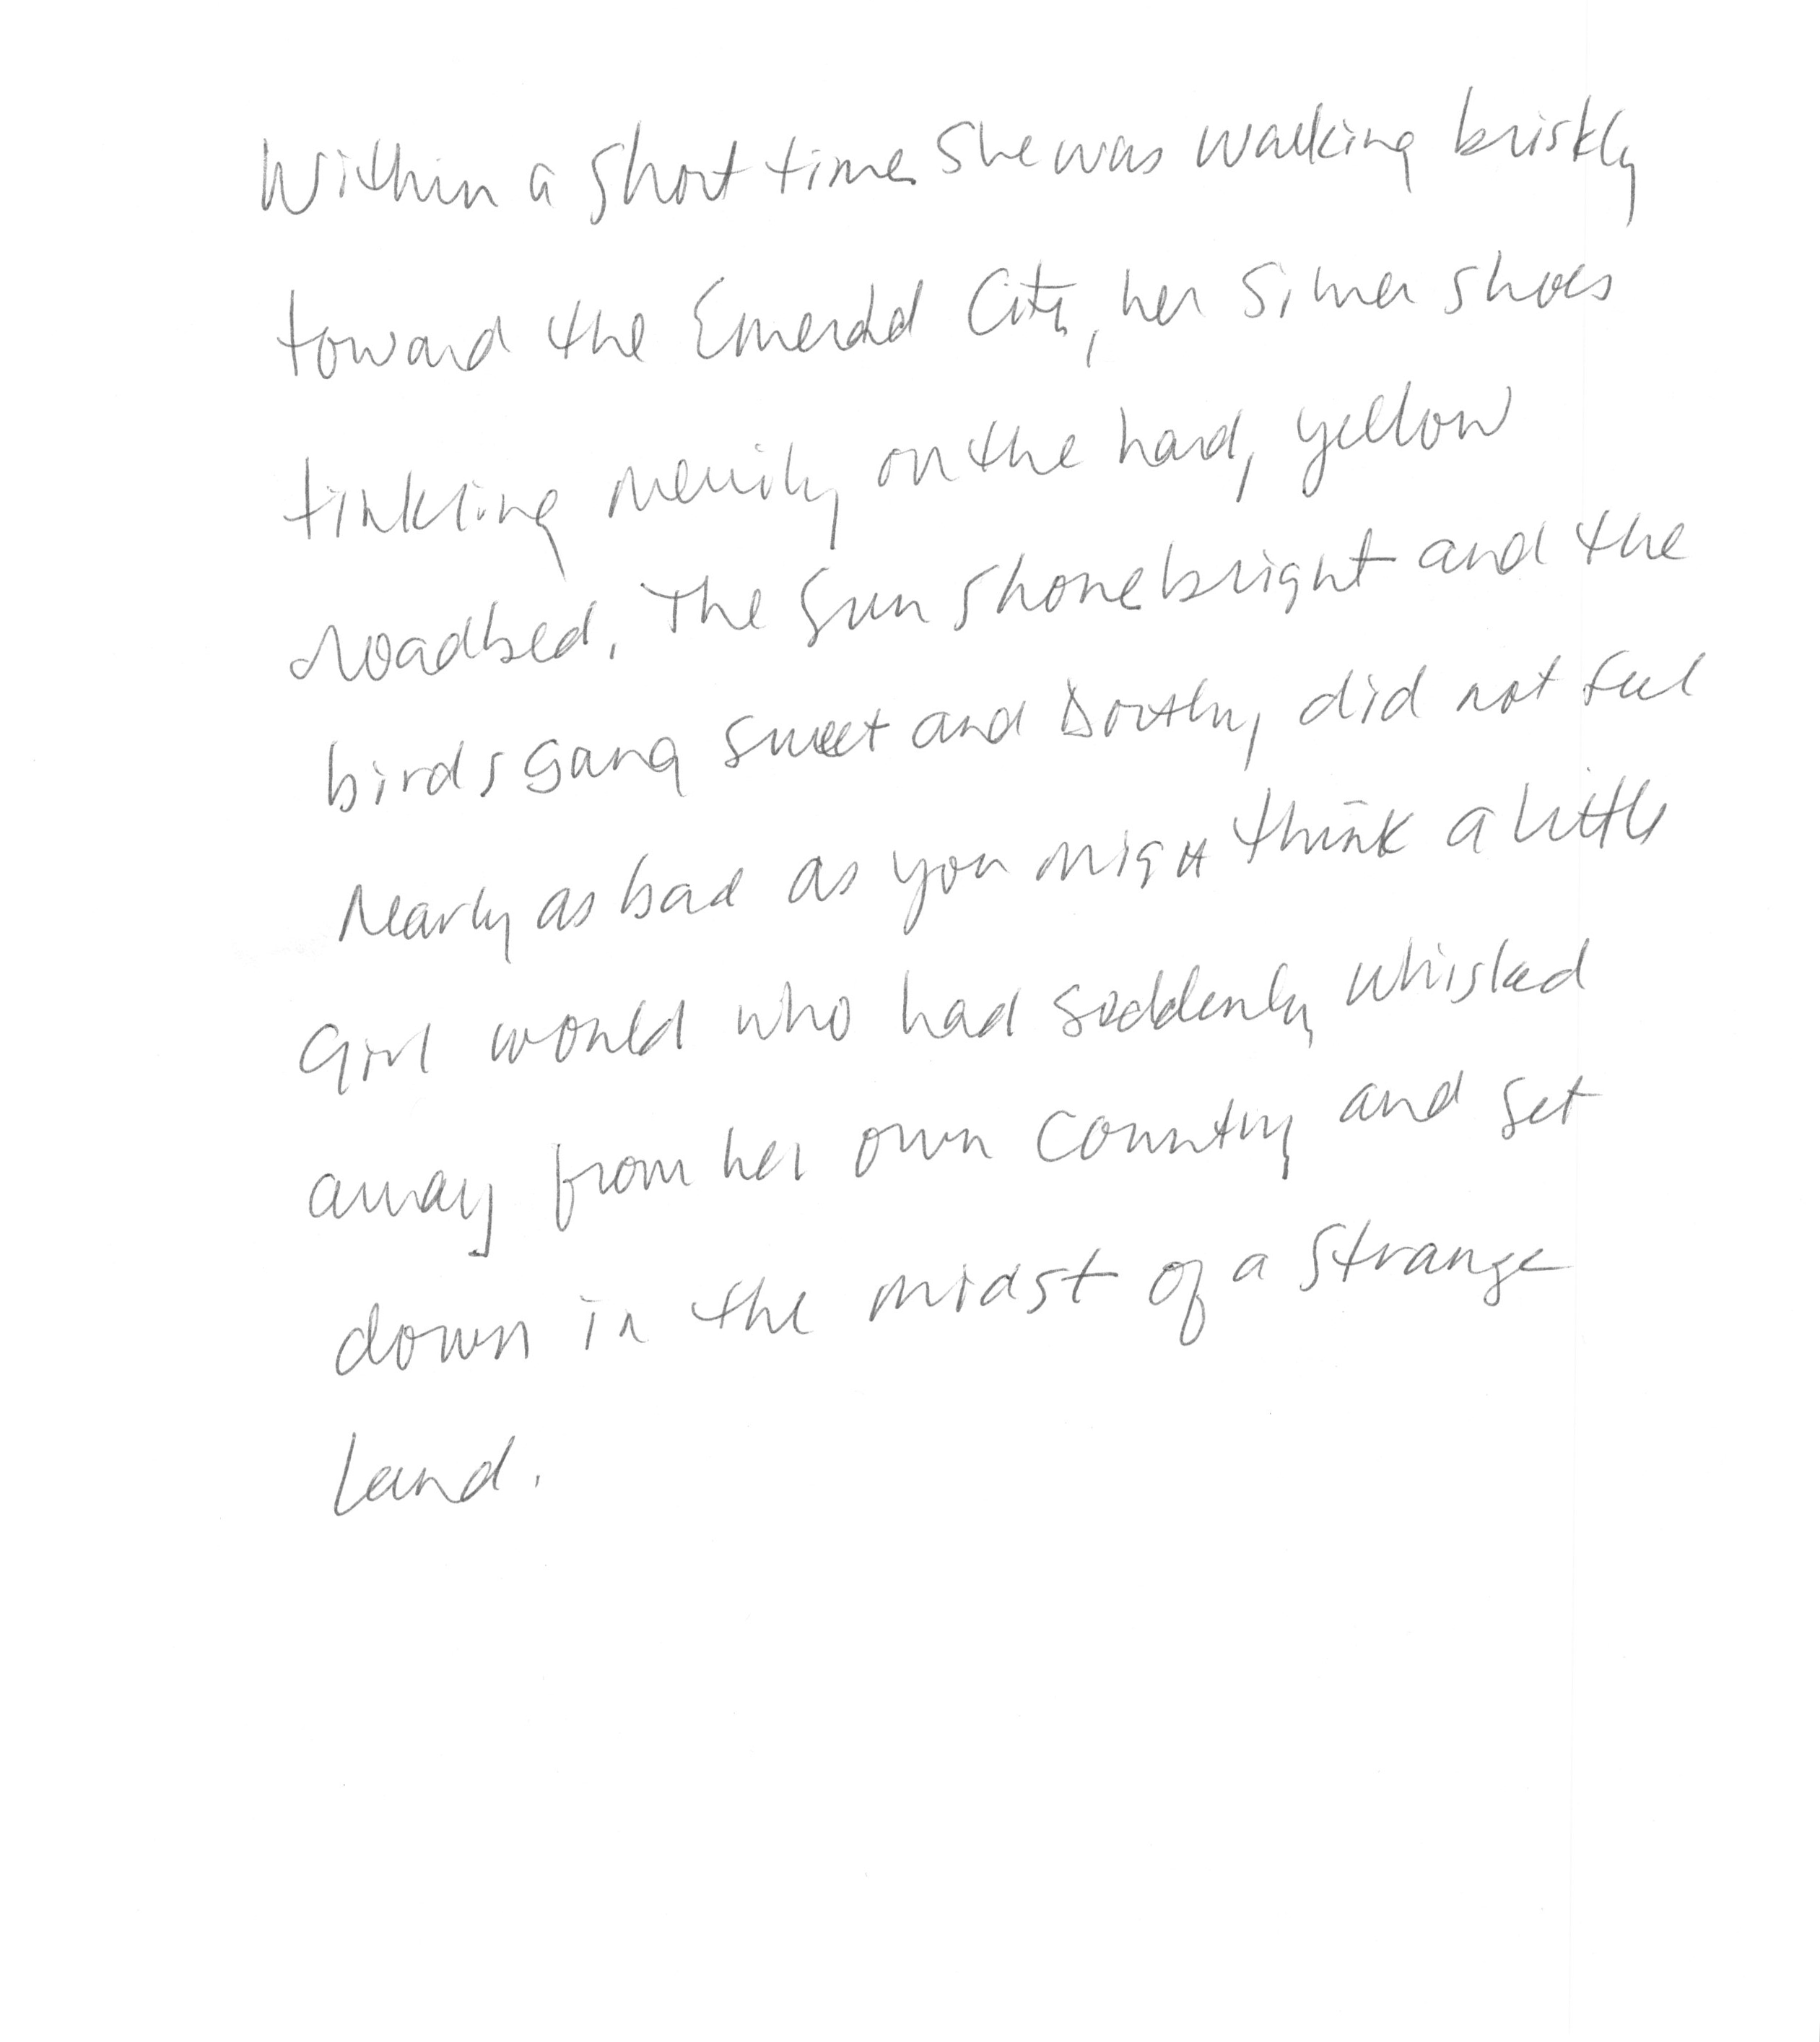 Within a short time she was walking briskly
toward the Emerald City, her silver shoes
tinkling merrily on the hard, yellow
roadbed. The sun shone bright and the
birds sang sweet and Dorthy did not feel
nearly as bad as you might think a little
girl would who had suddenly whisked
away from her own country and set
down in the midst of a strange
land.